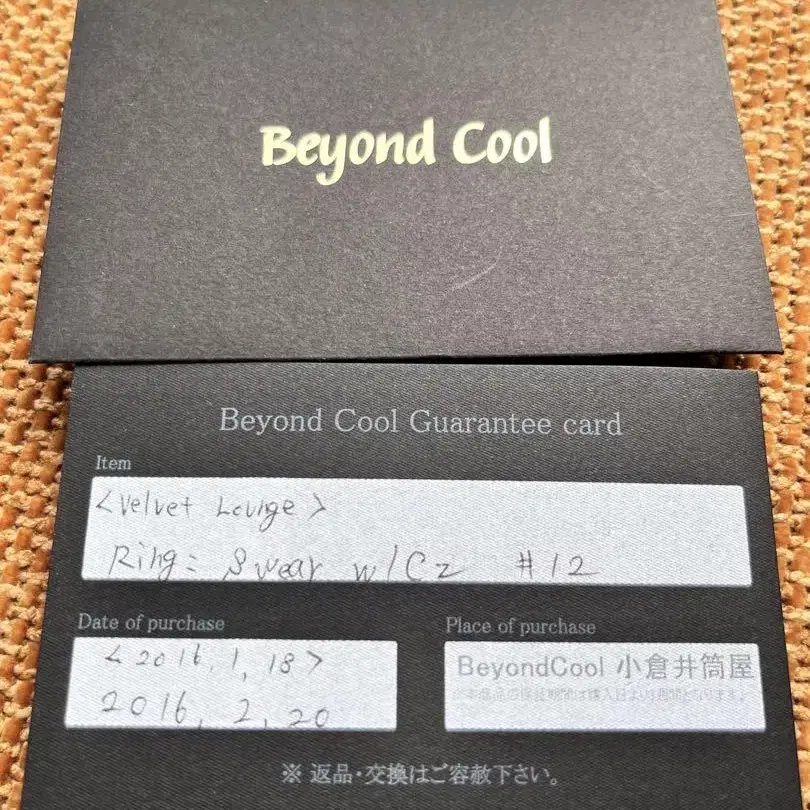 Beyond Cool
Beyond Cool Guarantee card
Item
<Velvet Lounge>
Ring: Swear w/Cz #12
Date of purchase
<2016, 1, 18>
2016, 2, 20
Place of purchase
BeyondCool 小倉井筒屋
※ 返品・交換はご容赦下さい。